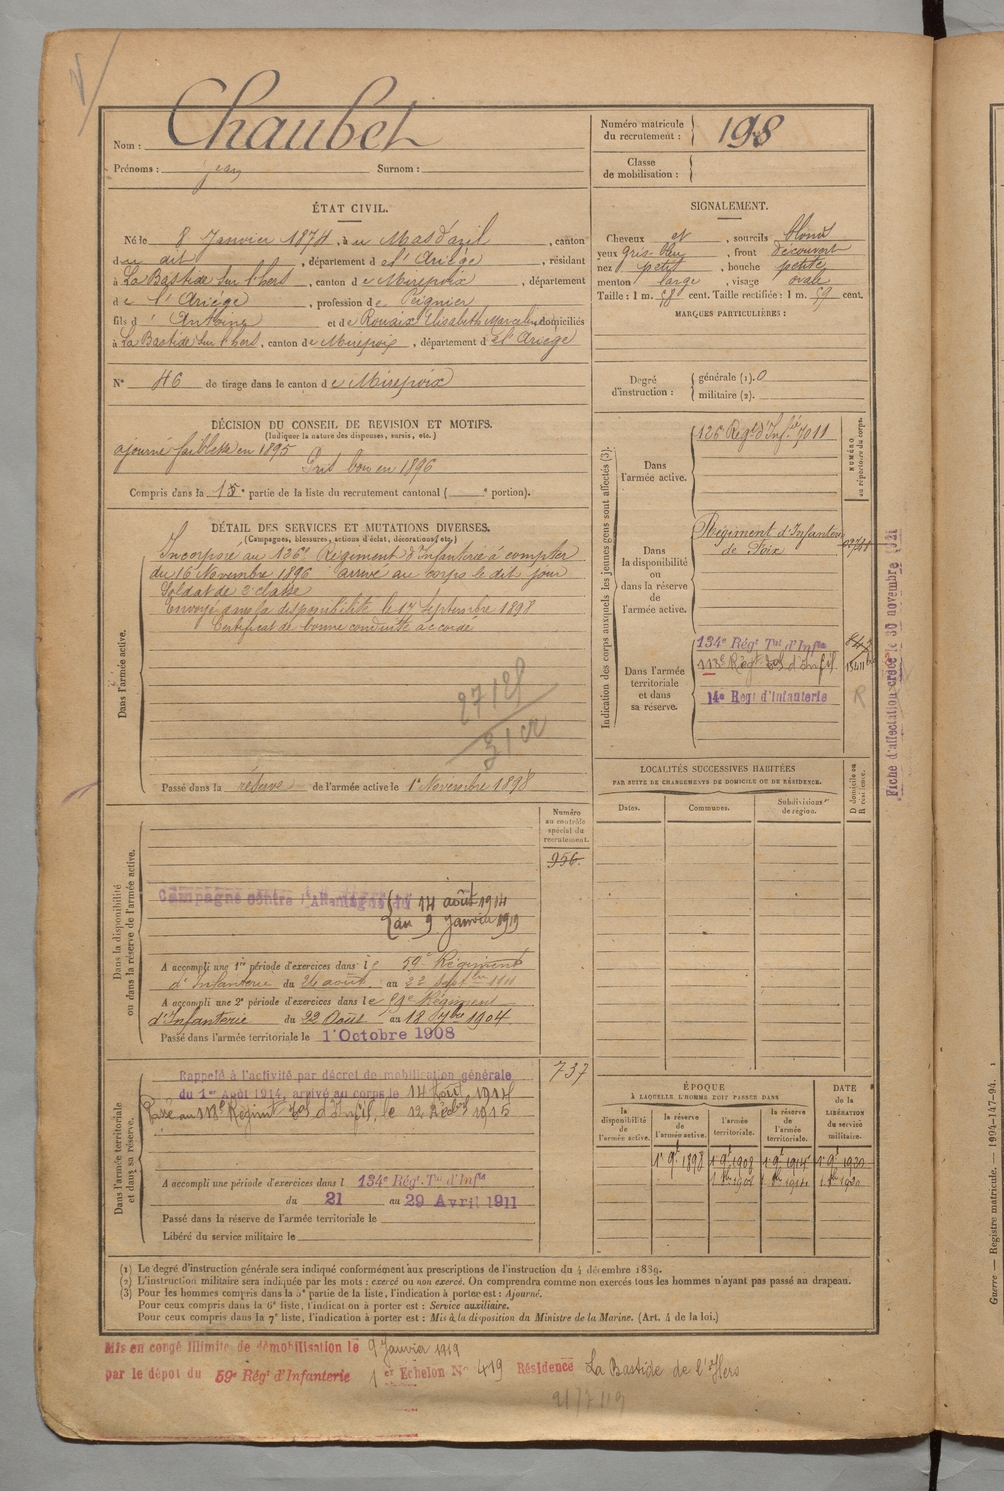 Nom : Chaubet
Prénoms : Jean Surnom :
Numéro matricule du recrutement : 198
Classe de mobilisation :
ÉTAT CIVIL.
Né le 8 Janvier 1874, à u Mas d'azil, canton
du dit, département de l'Ariège, résidant
à La Bastide sur l'hers, canton de Mirepoix, département
de l'Ariège, profession de Peignier
fils d' Antoine et de Rouaix Elisabeth Marceline domiciliés
à La Bastide sur l'hers, canton de Mirepoix, département de l'Ariège
N° 46 de tirage dans le canton de Mirepoix
SIGNALEMENT.
Cheveux et, sourcils blond
yeux gris-bleu, front découvert
nez petit, bouche petite
menton large, visage ovale
Taille : 1 m. 58 cent. Taille rectifiée : 1 m. 59 cent.
MARQUES PARTICULIÈRES :
Degré d'instruction : générale (1). 0
militaire (2).
DÉCISION DU CONSEIL DE REVISION ET MOTIFS.
(Indiquer la nature des dispenses, sursis, etc.)
ajourné faiblesse en 1895
Pris bon en 1896
Compris dans la 15e partie de la liste du recrutement cantonal ( e portion).
DÉTAIL DES SERVICES ET MUTATIONS DIVERSES.
(Campagnes, blessures, actions d'éclat, décorations, etc.)
Dans l'armée active.
Incorporé au 126e Régiment d'Infanterie à compter
du 16 Novembre 1896 arrivé au corps le dit jour
Soldat de 2e classe
Envoyé dans la disponibilité le 17 Septembre 1898
Certificat de bonne conduite accordé
Passé dans la réserve de l'armée active le 1er Novembre 1898
Indication des corps auxquels les jeunes gens sont affectés (3).
NUMÉRO au répertoire du corps.
Dans l'armée active.
126 Régt d'Infie 7011
Dans la disponibilité ou dans la réserve de l'armée active.
Régiment d'Infanterie
de Foix
Dans l'armée territoriale et dans sa réserve.
134e Régt Tal d'Infie
113e Régt Tal d'Infie
14e Régt d'Infanterie
R
Fiche d'affectation créée le 30 novembre 1921
LOCALITÉS SUCCESSIVES HABITÉES
PAR SUITE DE CHANGEMENTS DE DOMICILE OU DE RÉSIDENCE.
Dates. Communes. Subdivisions de région. D domicile ou R résidence.
Dans la disponibilité ou dans la réserve de l'armée active.
Numéro au contrôle spécial du recrutement.
956
Campagne contre l'Allemagne du 14 août 1914
au 9 Janvier 1919
A accompli une 1re période d'exercices dans le 59e Régiment
d'Infanterie du 26 août au 22 Septbre 1901
A accompli une 2e période d'exercices dans le Régiment
d'Infanterie du 22 Août au 18 7bre 1904
Passé dans l'armée territoriale le 1er Octobre 1908
Dans l'armée territoriale et dans sa réserve.
737
Rappelé à l'activité par décret de mobilisation générale
du 1er Août 1914, arrivé au corps le 14 Août 1914
Passé au 113e Régiment Tal d'Infie, le 12 Décbre 1915
A accompli une période d'exercices dans l 134e Régt Tal d'Infie
du 21 au 29 Avril 1911
Passé dans la réserve de l'armée territoriale le
Libéré du service militaire le
ÉPOQUE
À LAQUELLE L'HOMME DOIT PASSER DANS
la disponibilité de l'armée active. la réserve de l'armée active. l'armée territoriale. la réserve de l'armée territoriale. DATE de la LIBÉRATION du service militaire.
(1) Le degré d'instruction générale sera indiqué conformément aux prescriptions de l'instruction du 4 décembre 1889.
(2) L'instruction militaire sera indiquée par les mots : exercé ou non exercé. On comprendra comme non exercés tous les hommes n'ayant pas passé au drapeau.
(3) Pour les hommes compris dans la 5e partie de la liste, l'indication à porter est : Ajourné.
Pour ceux compris dans la 6e liste, l'indication à porter est : Service auxiliaire.
Pour ceux compris dans la 7e liste, l'indication à porter est : Mis à la disposition du Ministre de la Marine. (Art. 4 de la loi.)
Mis en congé illimité de démobilisation le 9 Janvier 1919
par le dépôt du 59e Régt d'Infanterie 1er Echelon N° 419 Résidence La Bastide de l'Hers
Guerre — Registre matricule. — 1994-147-94.